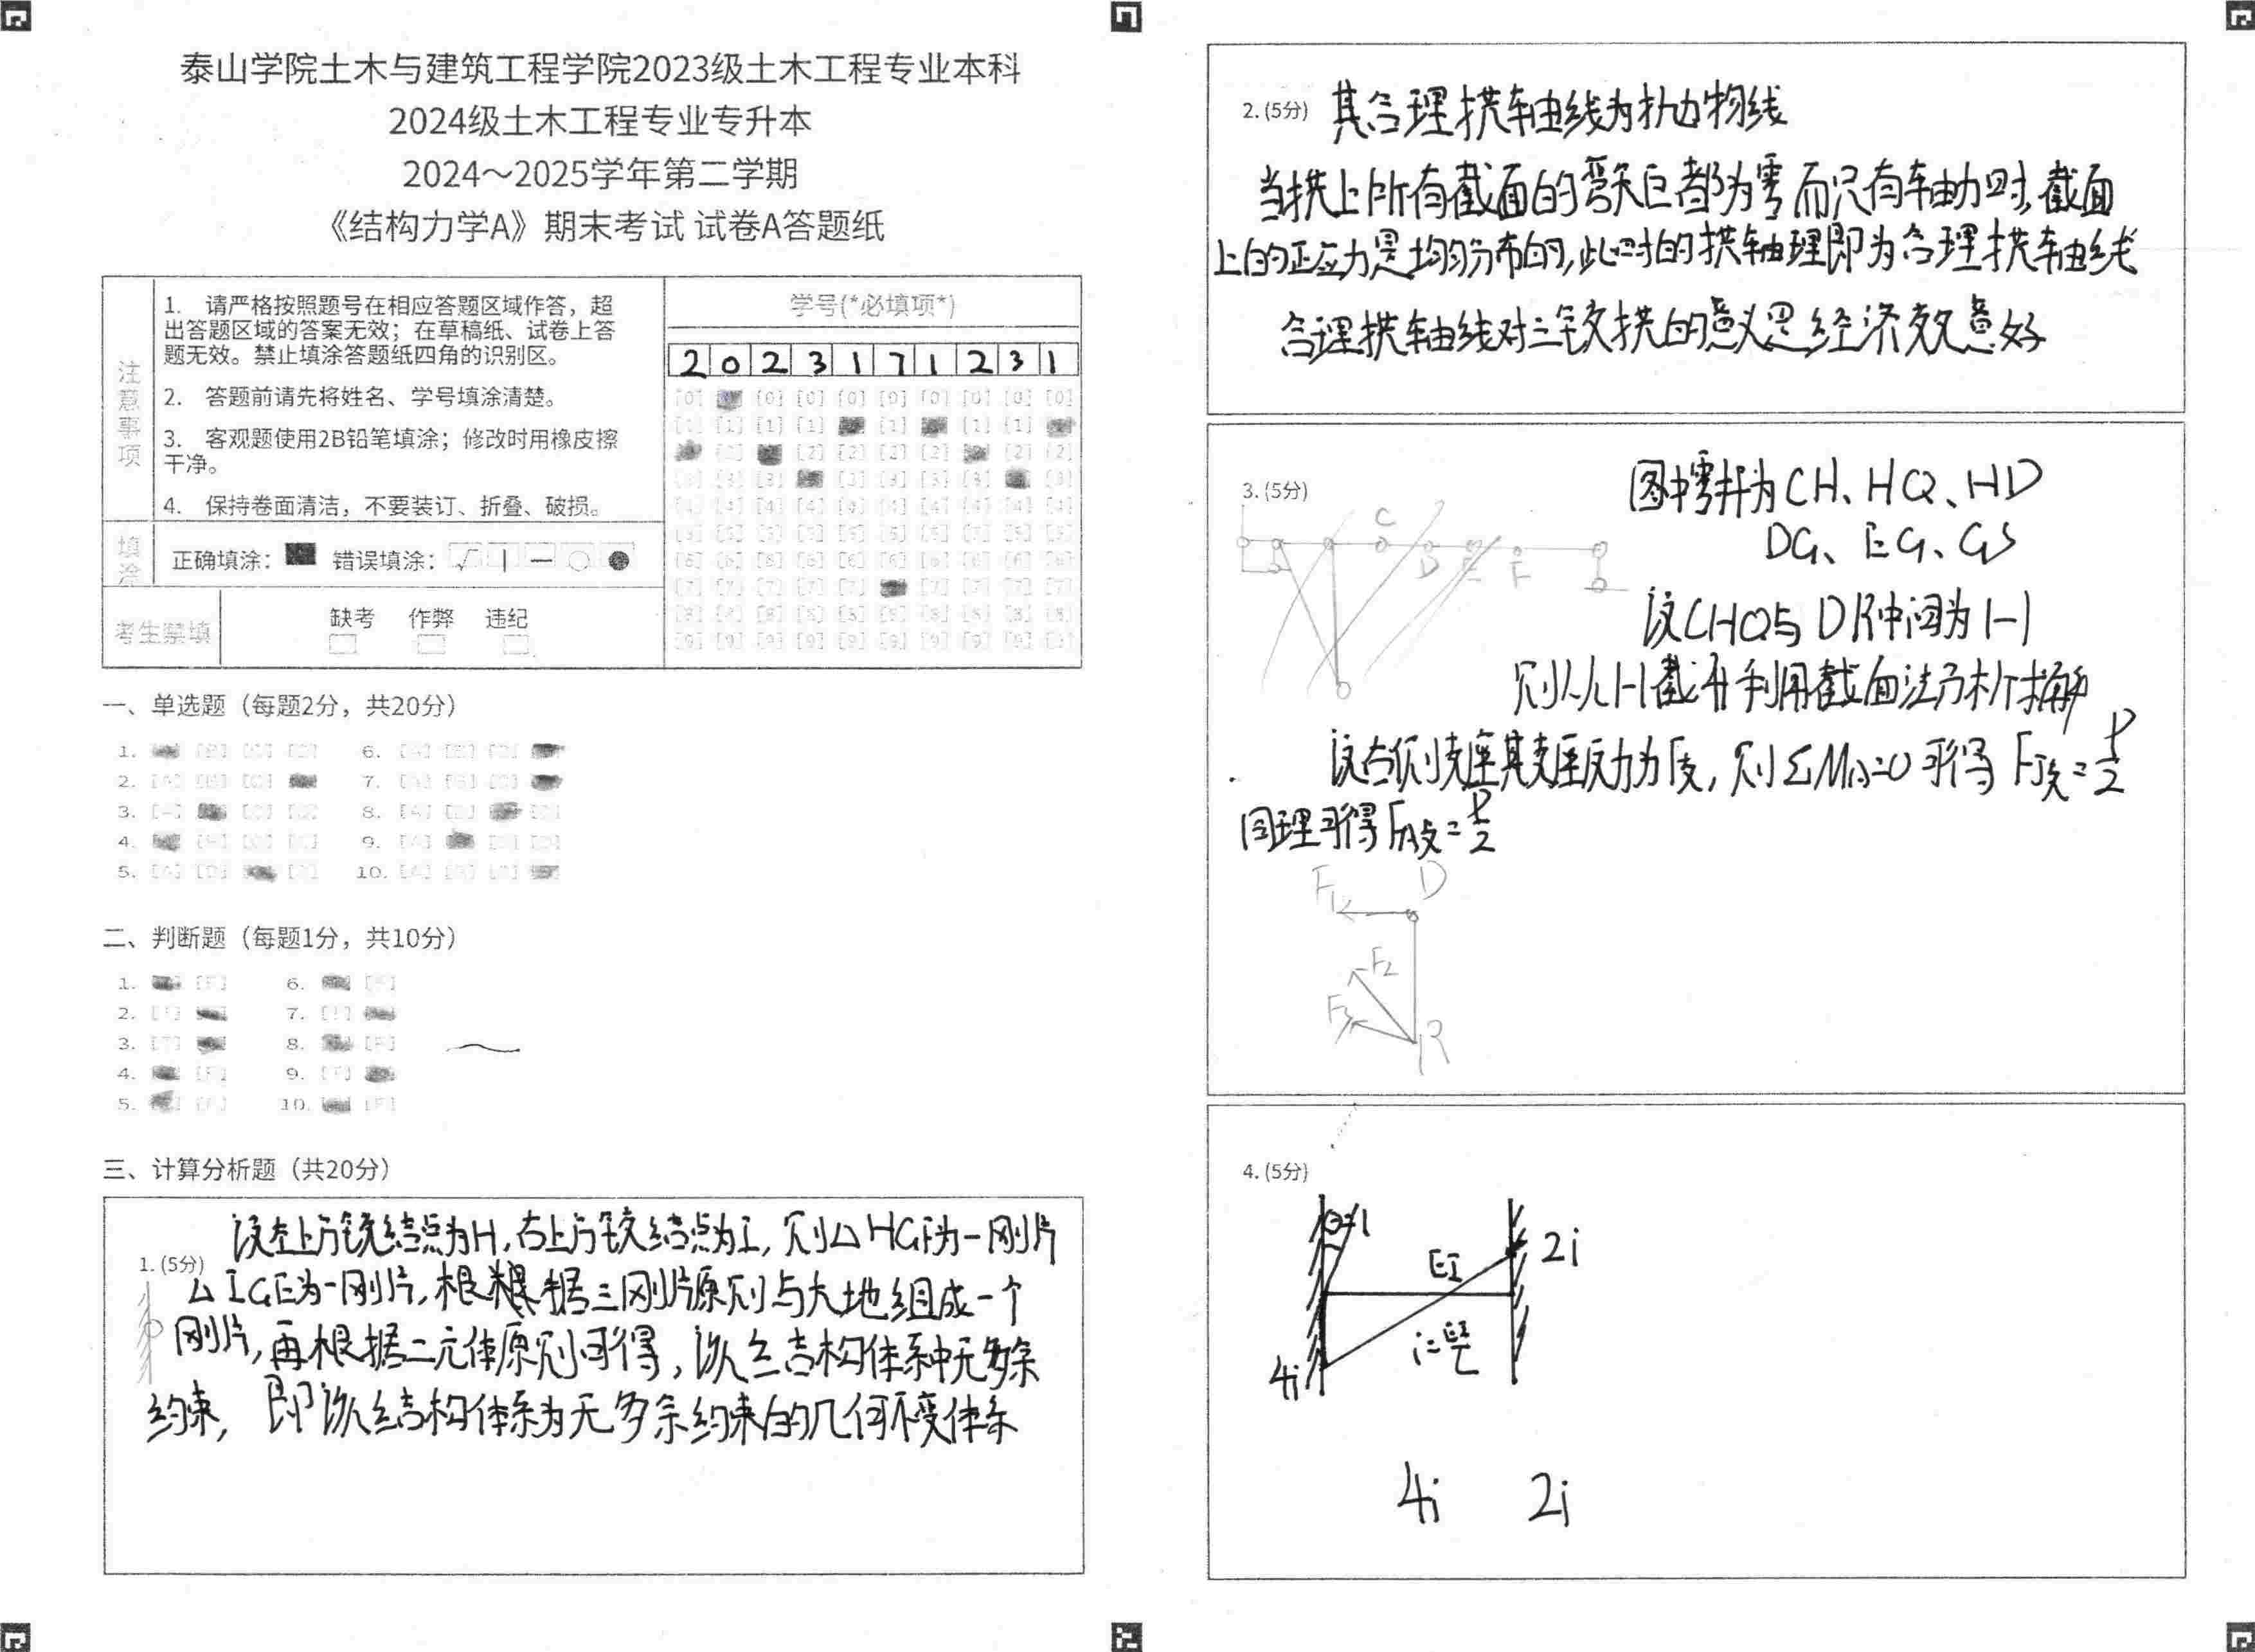 泰山学院土木与建筑工程学院2023级土木工程专业本科
2024级土木工程专业专升本
2024～2025学年第二学期
《结构力学A》期末考试 试卷A答题纸
注意事项
1. 请严格按照题号在相应答题区域作答，超
出答题区域的答案无效；在草稿纸、试卷上答
题无效。禁止填涂答题纸四角的识别区。
2. 答题前请先将姓名、学号填涂清楚。
3. 客观题使用2B铅笔填涂；修改时用橡皮擦
干净。
4. 保持卷面清洁，不要装订、折叠、破损。
填涂
正确填涂： 错误填涂：
考生禁填
缺考 作弊 违纪
学号(*必填项*)
2 0 2 3 1 7 1 2 3 1
一、单选题（每题2分，共20分）
1. 6.
2. 7.
3. 8.
4. 9.
5. 10.
二、判断题（每题1分，共10分）
1. 6.
2. 7.
3. 8.
4. 9.
5. 10.
三、计算分析题（共20分）
1. (5分)
设左上方铰结点为H,右上方铰结点为I,则△HGF为一刚片
△IGE为一刚片,根据三刚片原则与大地组成一个
刚片,再根据二元体原则可得,该结构体系中无多余
约束,即该结构体系为无多余约束的几何不变体系
2. (5分) 其合理拱轴曲线为抛物线
当拱上所有截面的弯矩都为零而只有轴力时,截面
上的正应力是均匀分布的,此时的拱轴理即为合理拱轴曲线
合理拱轴线对三铰拱的意义是经济效意好
3. (5分)
图中零杆为CH、HQ、HD
DG、EG、GS
C D E F
设CHQ与DR中间为1-1
则从1-1截开利用截面法
设右侧支座其支座反力为F支,则ΣMA=0可得FJ支=P/2
同理可得FA支=P/2
F1 D
F2
F3
R
4. (5分)
θ=1
EI
2i
i=EI/L
4i
4i 2i